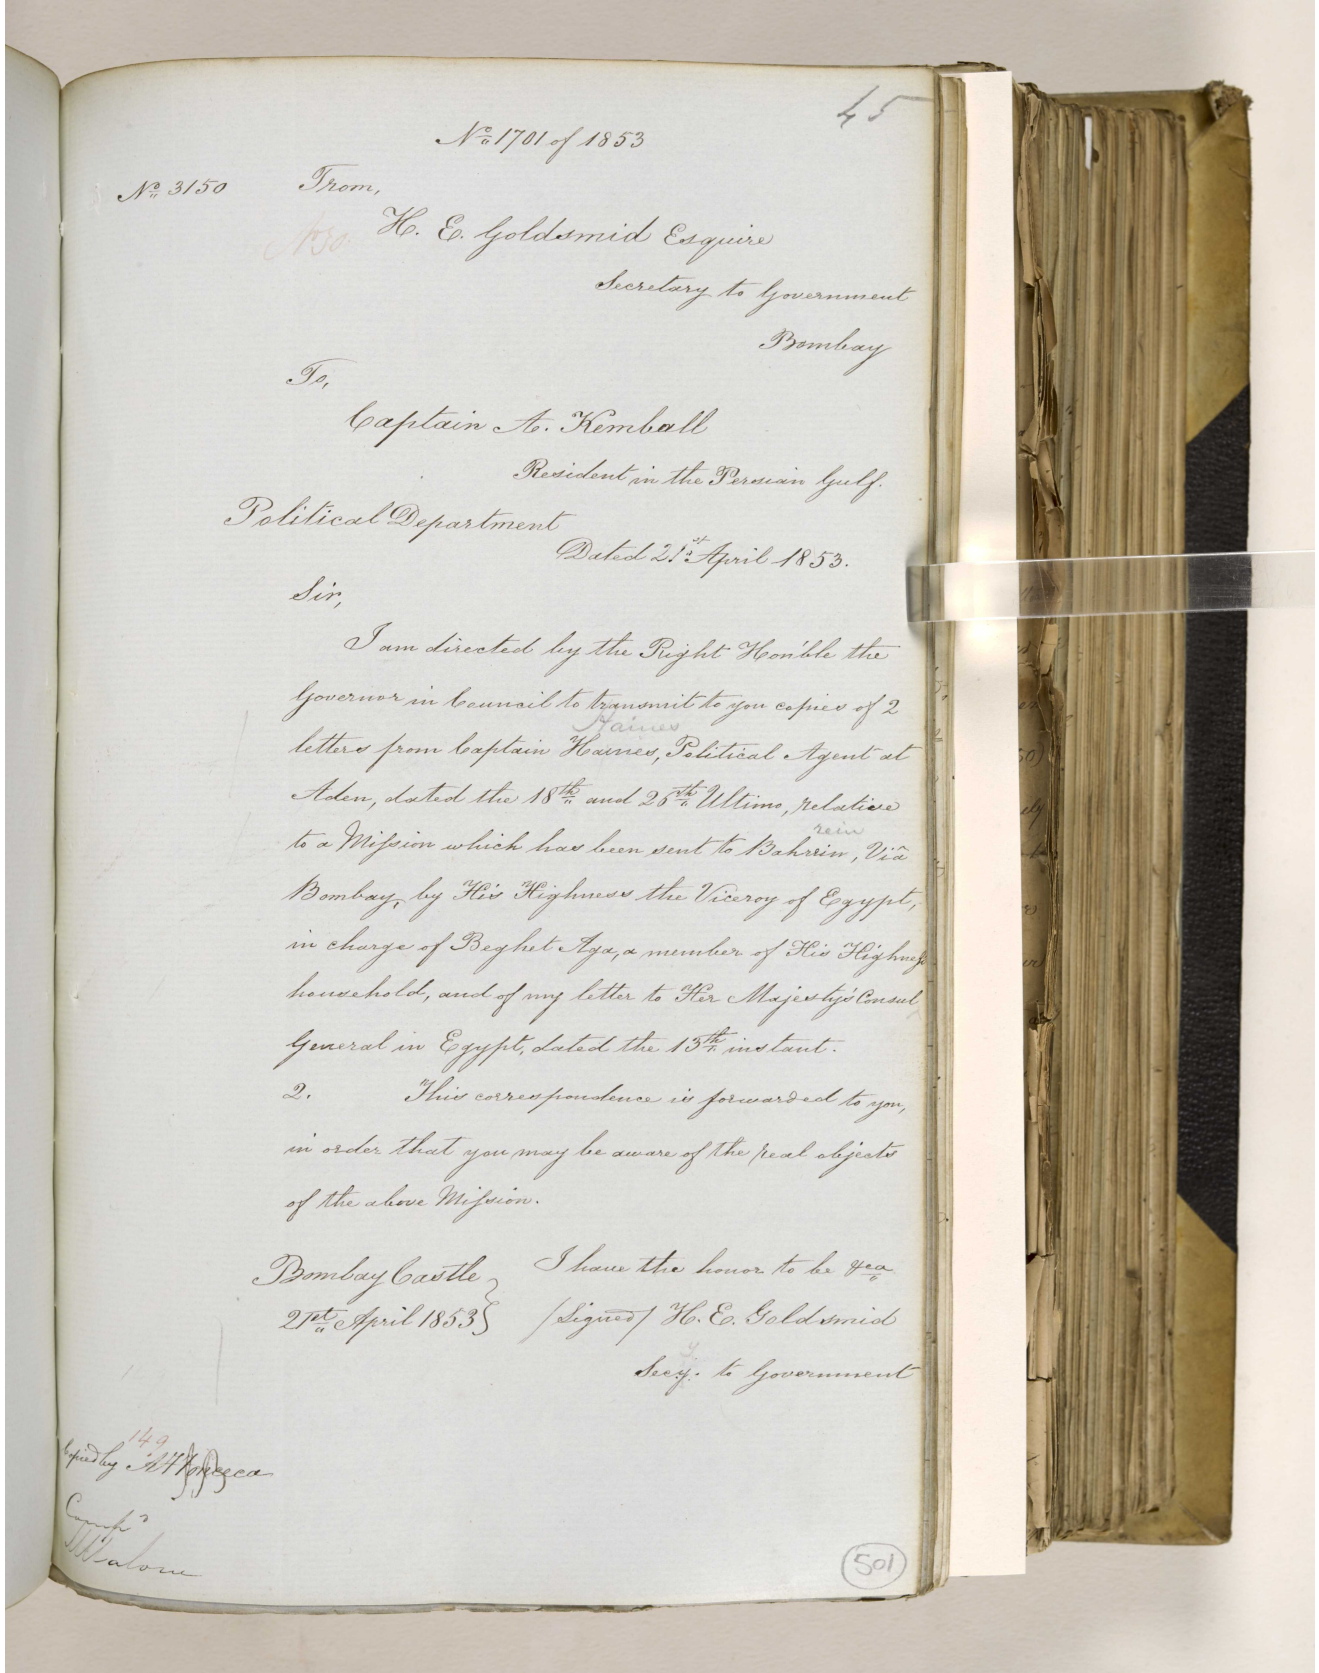 45
No. 1701 of 1853
No. 3150
From,
H. E. Goldsmid Esquire
Secretary to Government
Bombay
To,
Captain A. Kemball
Resident in the Persian Gulf.
Political Department
Dated 21st April 1853.
Sir,
I am directed by the Right Hon'ble the
Governor in Council to transmit to you copies of 2
Haines
letters from Captain Haines, Political Agent at
Aden, dated the 18th and 26th Ultimo, relative
rein
to a Mission which has been sent to Bahrein, Viâ
Bombay, by His Highness the Viceroy of Egypt,
in charge of Beghet Aga, a member of His Highness
household, and of my letter to Her Majesty's Consul
General in Egypt, dated the 13th instant.
2. This correspondence is forwarded to you,
in order that you may be aware of the real objects
of the above Mission.
Bombay Castle
21st April 1853
I have the honor to be &ca
/Signed/ H. E. Goldsmid
Secy. to Government
149
Copied by
Compd
501